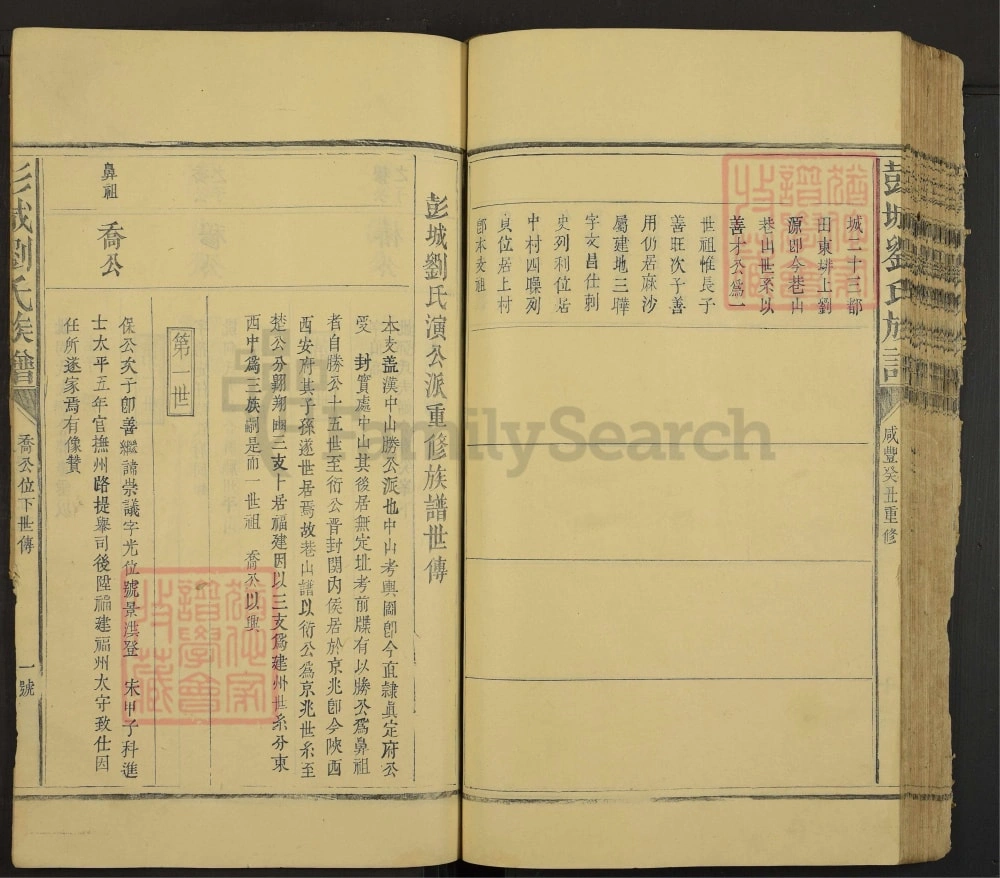 彭城劉氏族譜
咸豐癸丑重修
城二十三都
田東埂上劉
源即今巷山
巷山世系以
善才公為一
世祖惟長子
善旺次子善
用仍居麻沙
屬建地三驊
字文昌仕刺
史列利位居
中村四驜列
貞位居上村
彭城劉氏演公派重修族譜世傳
本支盖漢中山勝公派也中山考輿圖卽今直隸眞定府公
受 封實處中山其後居無定址考前牒有以勝公爲鼻祖
者自勝公十五世至衍公晋封関內侯居於京兆卽今陝西
西安府其子孫遂世居焉故巷山譜以衍公爲京兆世系至
楚公分翱翔豳三支卜居福建因以三支爲建州世系分東
西中爲三族嗣是而一世祖 喬公以興
第一世
鼻祖
喬公
保公次子卽善繼諱崇議字光位號景洪登 宋甲子科進
士太平五年官撫州路提舉司後陞福建福州太守致仕因
任所遂家焉有像贊
彭城劉氏族譜
喬公位下世傳
一號
FamilySearch